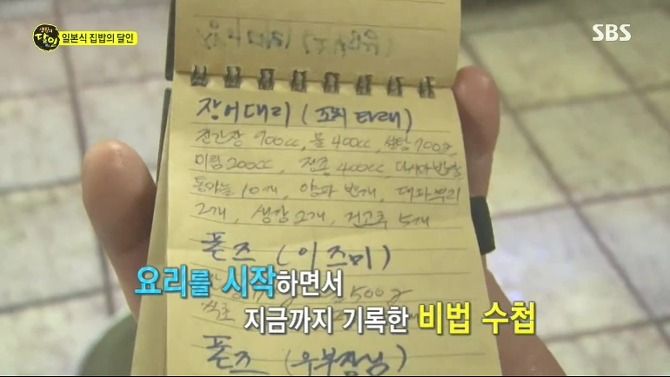 생활의 달인 일본식 집밥의 달인
SBS
장어대리 (꼬치 타래)
진간장 900cc, 물 400cc, 설탕 700g,
미림 200cc, 정종 400cc, 다시마
통마늘 10개, 양파 반개, 대파뿌리
2개, 생강 2개, 건고추 5개
폰즈 (이즈미)
500
요리를 시작하면서
지금까지 기록한 비법 수첩
폰즈 (우부장님)